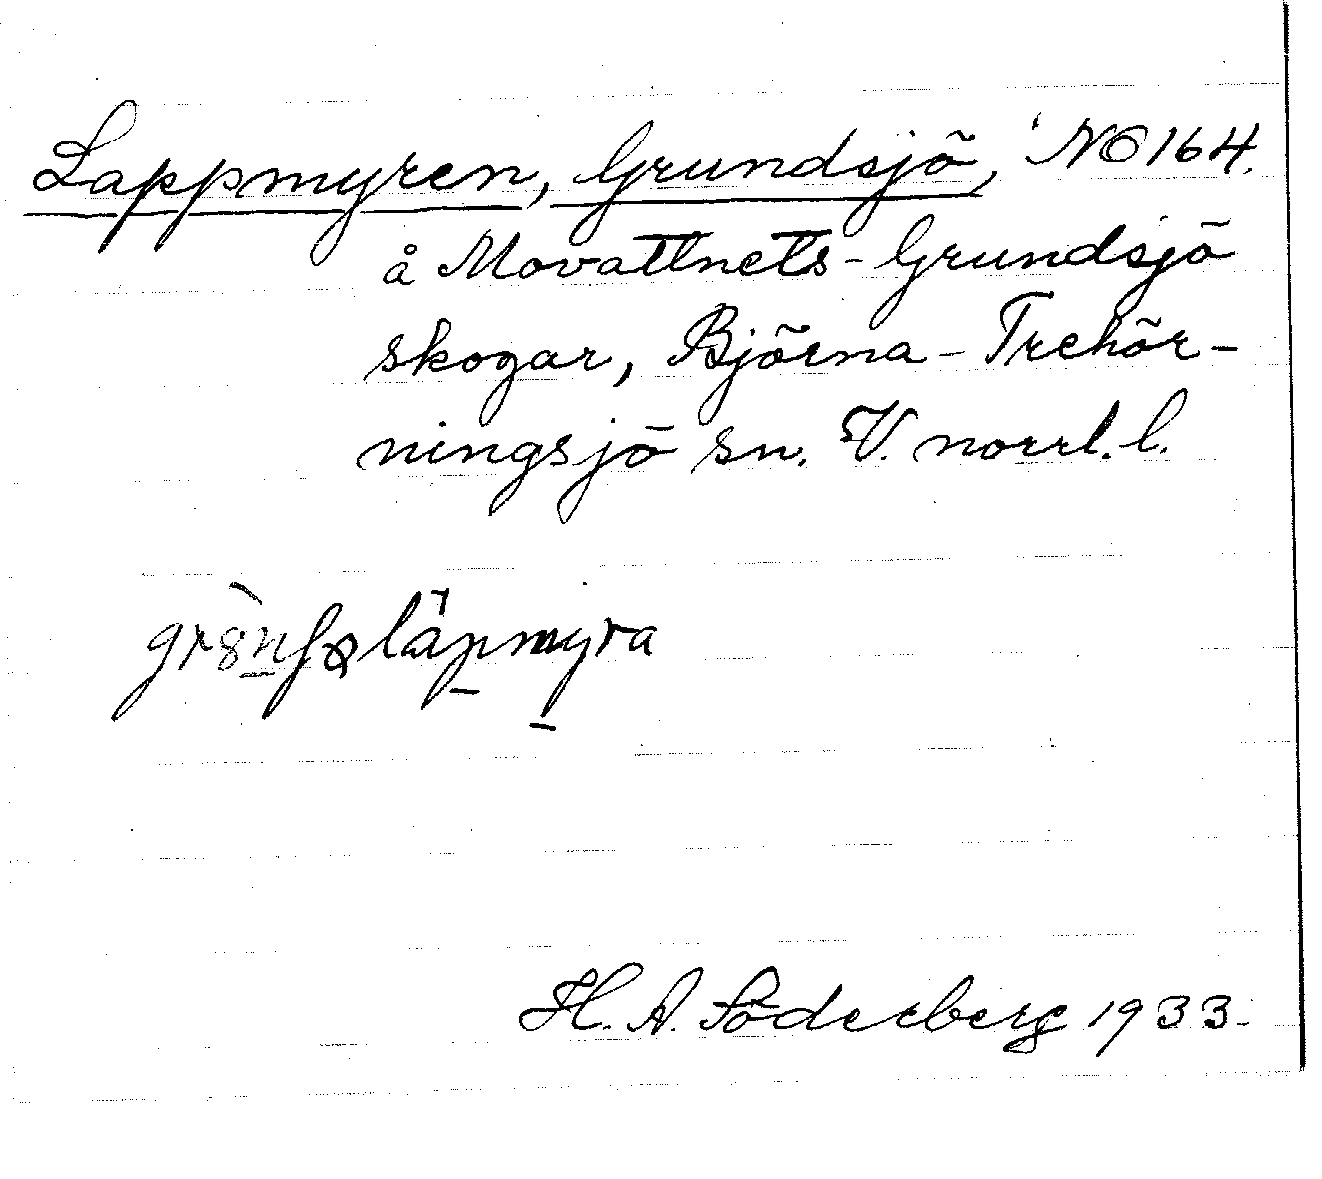 Lappmyren, Grundsjö, NO 164.
å Movattnets-Grundsjö
skogar, Björna-Trehör-
ningsjö sn. V. norrl. l.
läpmyra
H. A. Söderberg 1933.